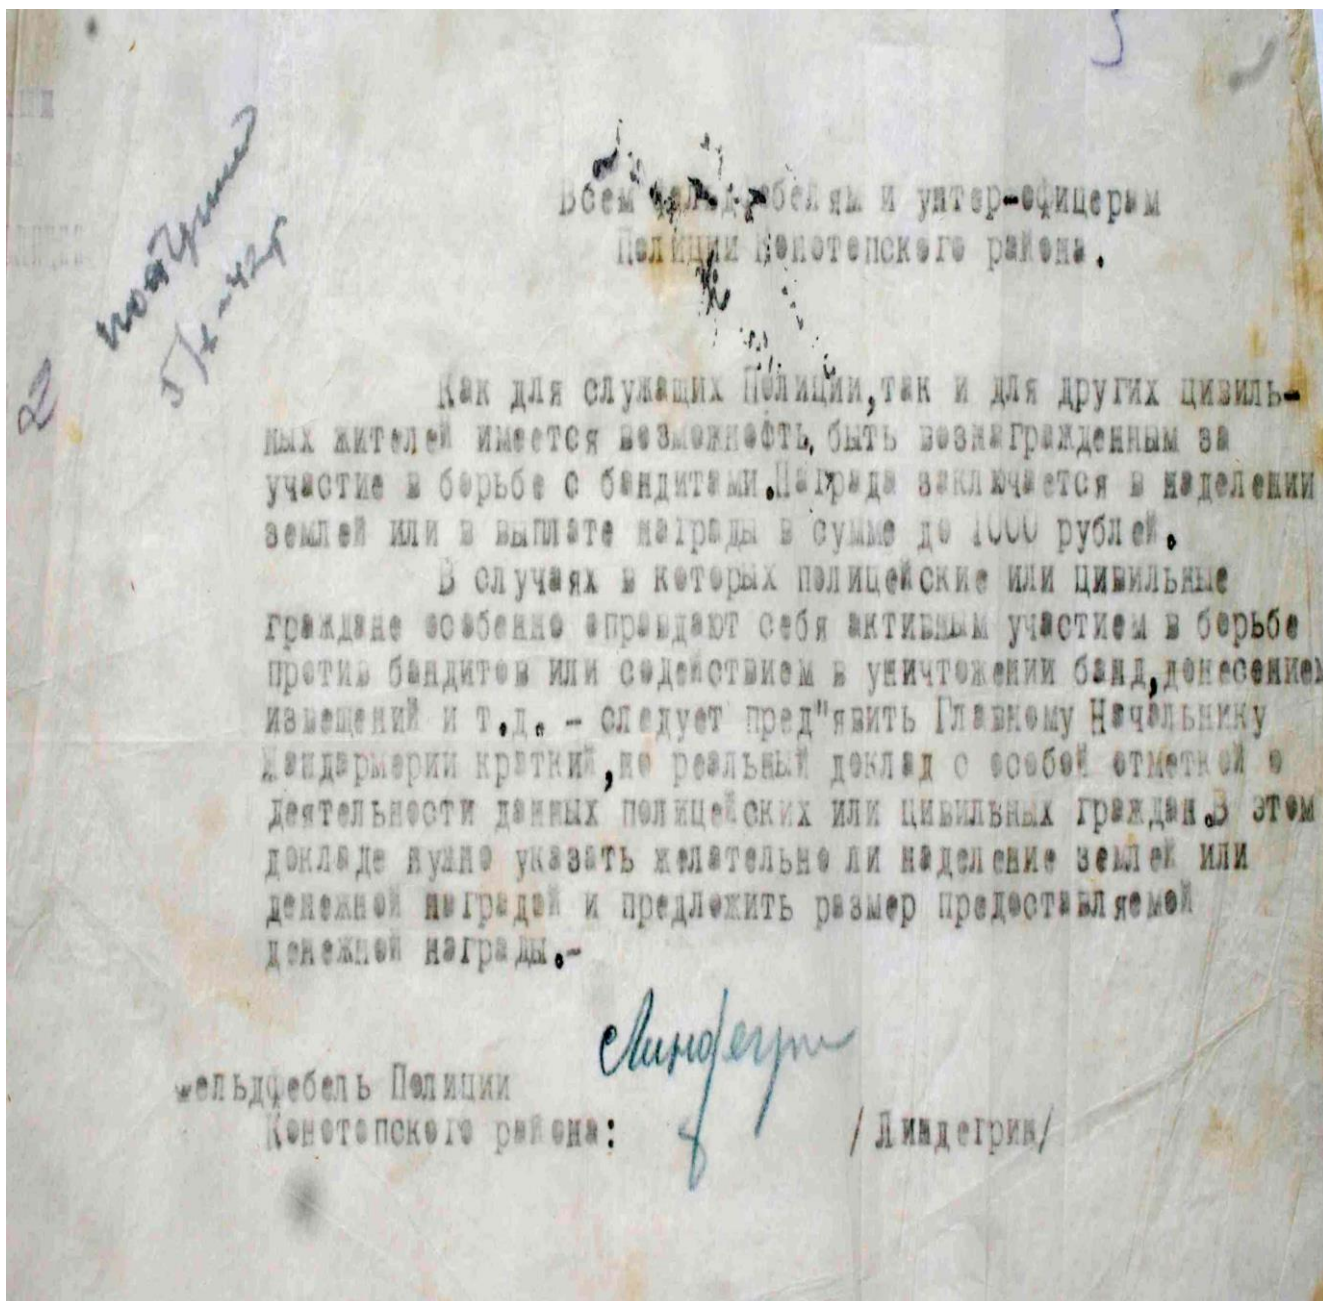 Всем фельдфебелям и унтер-офицерам
Полиции Конотопского района.
5/X-42г
Как для служащих Полиции,так и для других цивиль-
ных жителей имеется возможнофть быть вознагражденным за
участие в борьбе с бандитами.Награда заключается в наделении
землей или в выплате награды в сумме до 1000 рублей.
В случаях в которых полицейские или цивильные
граждане особенно оправдают себя активным участием в борьбе
против бандитов или содействием в уничтожении банд,донесением
извещений и т.д. - следует пред"явить Главному Начальнику
Жандармерии краткий,но реальный доклад с особой отметкой о
деятельности данных полицейских или цивильных граждан.В этом
докладе нужно указать желательно ли наделение землей или
денежной наградой и предложить размер предоставляемой
денежной награды.-
Фельдфебель Полиции
Конотопского района: /Линдегрин/